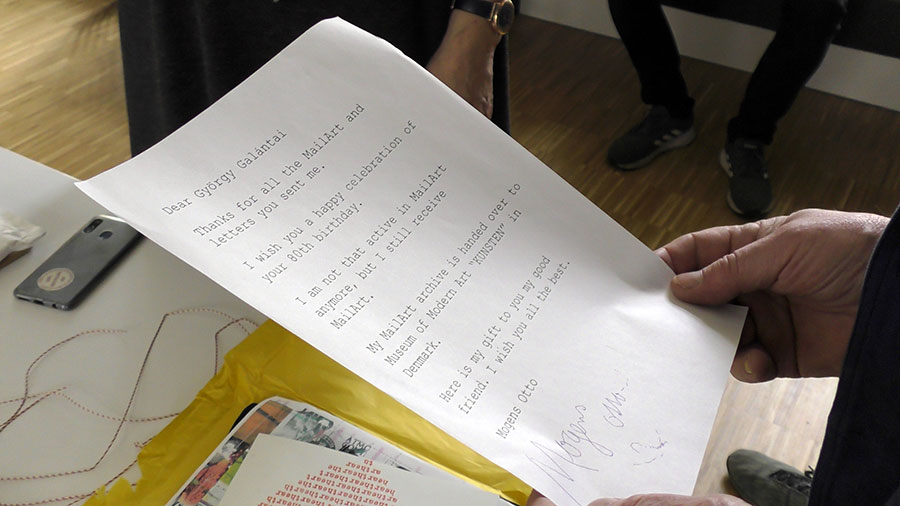 Dear György Galántai
Thanks for all the MailArt and
letters you sent me.
I wish you a happy celebration of
your 80th birthday.
I am not that active in MailArt
anymore, but I still receive
MailArt.
My MailArt archive is handed over to
Museum of Modern Art "KUNSTEN" in
Denmark.
Here is my gift to you my good
friend. I wish you all the best.
Mogens Otto
Mogens
Otto